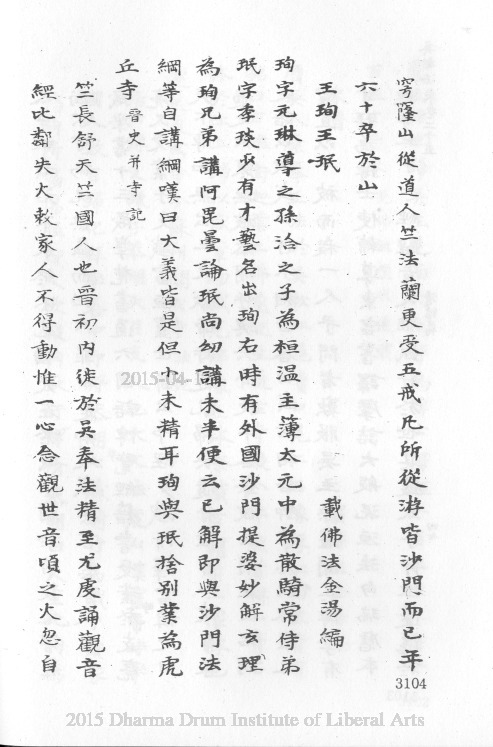 穹窿山從道人竺法蘭更受五戒凡所從游皆沙門而已年
六十卒於山
王珣王珉　載佛法金湯編
珣字元琳導之孫洽之子為桓温主簿太元中為散騎常侍弟
珉字季琰少有才藝名出珣右時有外國沙門提婆妙解玄理
為珣兄弟講阿毘曇論珉尚幼講未半便云已解即與沙門法
綱等自講綱嘆曰大義皆是但小未精耳珣與珉捨別業為虎
丘寺 晉史并寺記
竺長舒天竺國人也晉初內徙於吳奉法精至尤虔誦觀音
經比鄰失火敕家人不得動惟一心念觀世音頃之火忽自
3104
2015-04-1
2015 Dharma Drum Institute of Liberal Arts